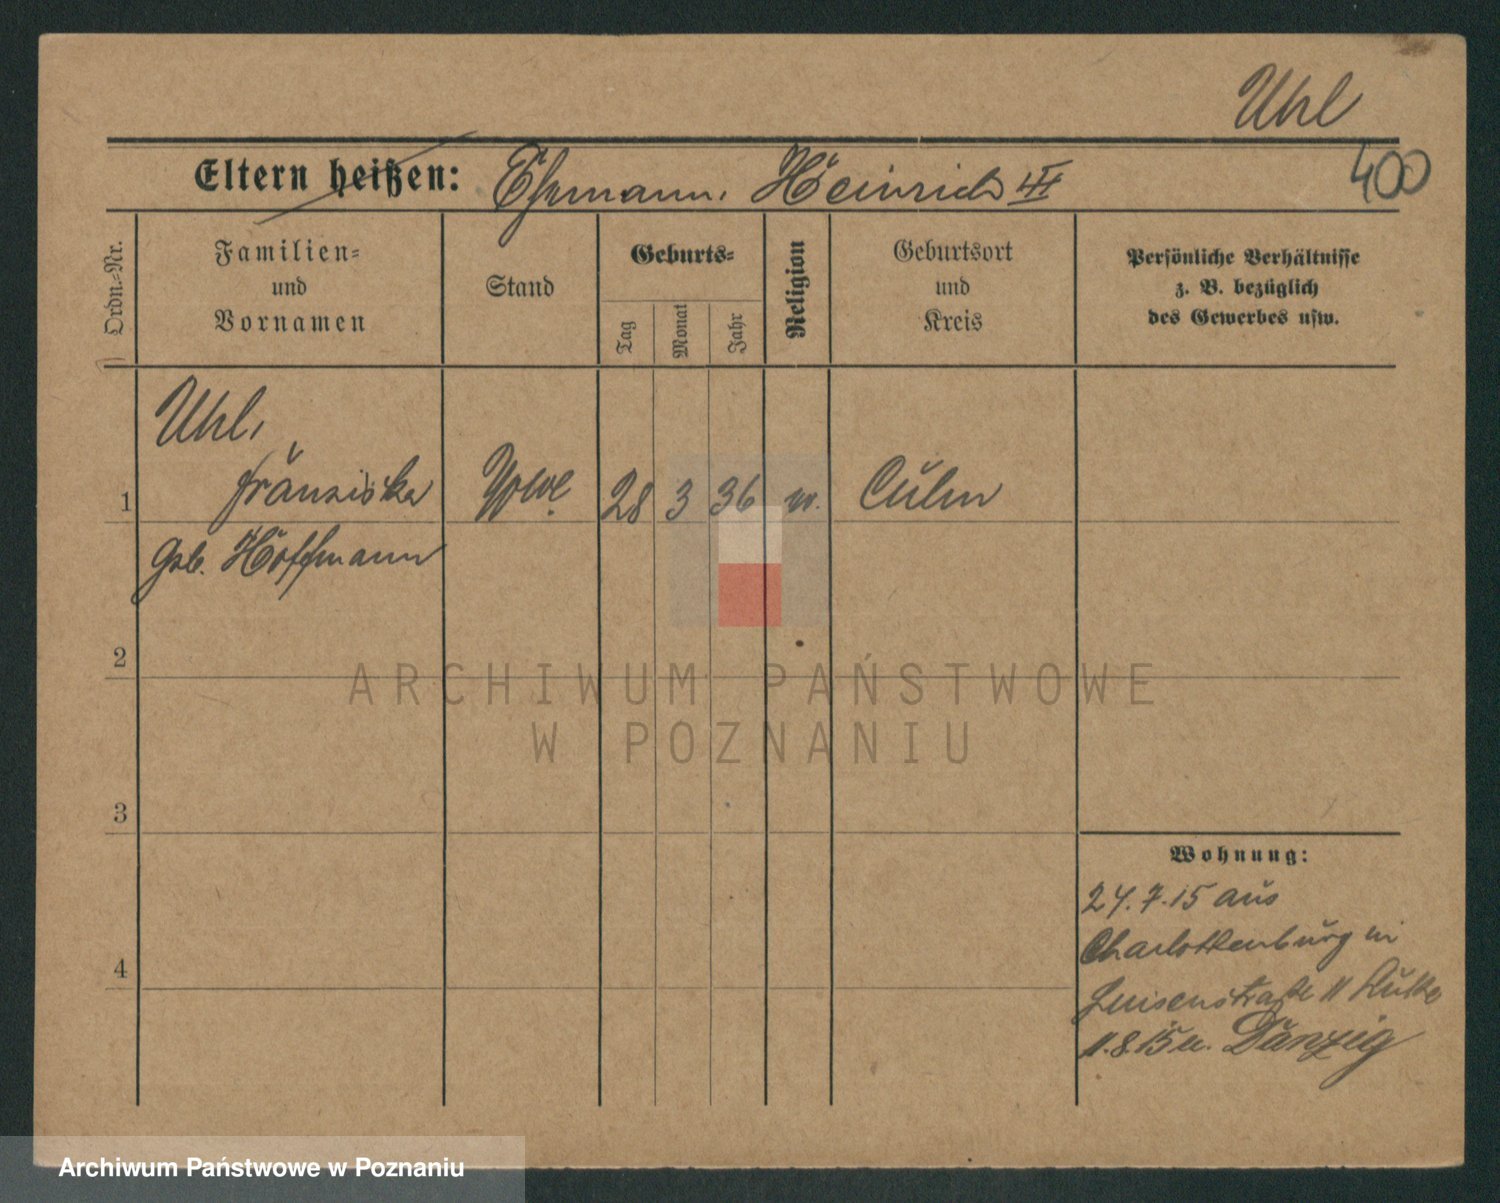 Uhl
400
Eltern heißen: Ehemann: Heinrich
Ordn.-Nr.
Familien-
und
Vornamen
Stand
Geburts-
Tag
Monat
Jahr
Religion
Geburtsort
und
Kreis
Persönliche Verhältnisse
z. B. bezüglich
des Gewerbes usw.
Uhl,
1 Franziska Wwe. 28 3 36 Culm
geb. Hoffmann
2
3
4
Wohnung:
24.7.15 aus
Charlottenburg in
Luisenstraße 11
11.8.15 n. Danzig
ARCHIWUM PAŃSTWOWE
W POZNANIU
Archiwum Państwowe w Poznaniu